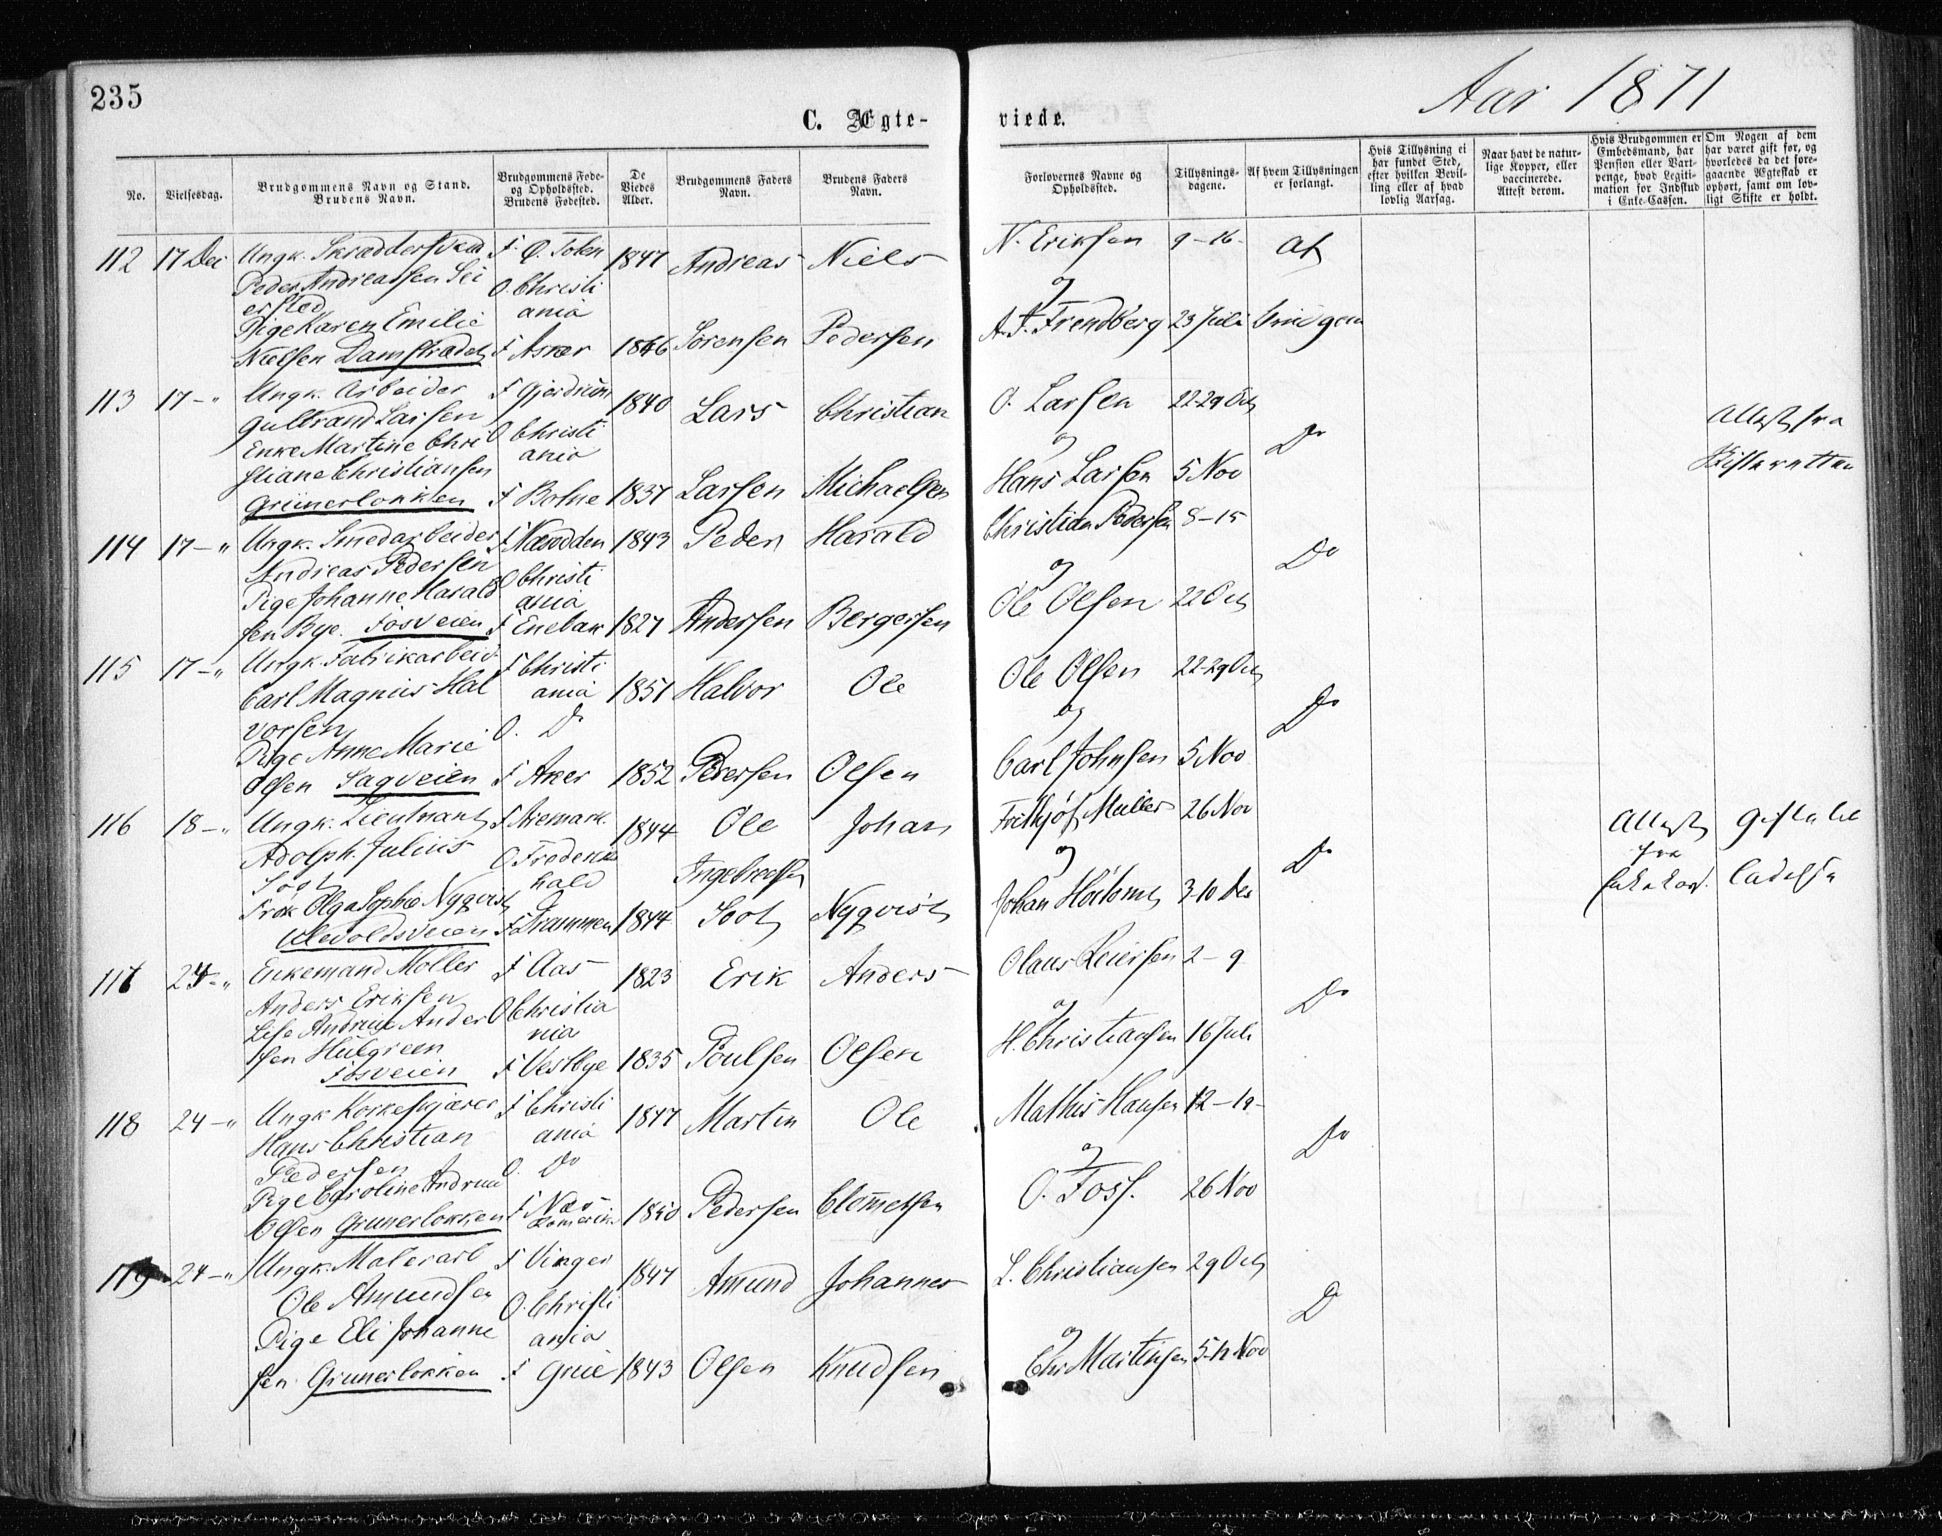 235
Aar 1871
C. Ægte-
viede.
No.
Vielsesdag.
Brudgommens Navn og Stand.
Brudens Navn.
Brudgommens Føde-
og Opholdssted.
Brudens Fødested.
De
Viedes
Alder.
Brudgommens Faders
Navn.
Brudens Faders
Navn.
Forlovernes Navne og
Opholdssted.
Tillysnings-
dagene.
Af hvem Tillysningen
er forlangt.
Hvis Tillysning ei
har fundet Sted,
efter hvilken Bevil-
ling eller af hvad
lovlig Aarsag.
Naar havt de natur-
lige Kopper, eller
vaccinerede.
Attest derom.
Hvis Brudgommen er
Embedsmand, har
Pension eller Vart-
penge, hvad Legiti-
mation for Indskud
i Enke-Cassen.
Om Nogen af dem
har været gift før, og
hvorledes da det fore-
gaaende Ægteskab er
ophørt, samt om lov-
ligt Skifte er holdt.
112 17 Dec Ungk. Skræddersvend F Ø. Toten 1847 Andreas Niels N. Eriksen 9-16- af
Peder Andreassen Sei O. Christi og
ersted ania
Pige Karen Emilie A. T. Frendberg 23 Juli
Nielsen Damstrædet F Asker Sørensen Pedersen
113 17 - " Ungk. Arbeider F Gjerdrum 1840 Lars Christian O. Larsen 22-29 Oct
Gulbrand Larsen O Christi og Do Attest fra
Enke Martine Chri ania Skifteretten
stiane Christiansen Hans Larsen 5 Nov
Grünerløkken F Botne 1837 Larsen Michaelsen
114 17 - " Ungk. Smedarbeider F Næsodden 1843 Peder Harald Christian Pedersen 8-15
Andreas Pedersen O Christi og Do
Pige Johanne Harald ania Ole Olsen 22 Oct
sen Bye. Fosveien F Enebak 1827 Andersen Bergersen
115 17 - " Ungk. Fabrikarbeid. F Christi Ole Olsen 22-29 Oct
Carl Magnus Hal ania 1851 Halvor Ole og Do
vorsen O. Do
Pige Anne Marie Carl Johnsen 5 Nov
Olsen Sagveien F Aker 1852 Pedersen Olsen
116 18 - " Ungk. Lieutnant F Aremark. 1844 Ole Johan Frithjof Müller 26 Nov Attest
Adolph Julius O Frederiks Ingebretsen og Do fra
Soot hald
Frøk Olga Sophie Nyqvist Johan 3-10 Dec
Ullevoldsveien F Drammen 1844 Soot Nyqvist
117 24 - " Enkemand Møller F Aas 1823 Erik Anders Olaus Leiersen 2-9
Anders Eriksen O Christia og Do
Andersen nia H. Christiansen 16 Juli
Fosveien F Vestbye 1835 Poulsen Olsen
118 24 - " Ungk F Christi 1847 Martin Ole Mathis Hansen 12-19-
Hans Christian ania og Do
Pedersen O. Do
Pige Caroline O. Foss. 26 Nov
Olsen Grunerløkken F Næs Romerike 1850 Pedersen Clemetsen
119 24 - " Ungk. Malerarb F Vinger 1847 Amund Johannes L. Christiansen 29 Oct
Ole Amundsen O. Christi og Do
Pige Eli Johanne ania
sen Grunerløkken F Grue 1843 Olsen Knudsen Chr Martinsen 5-12 Nov